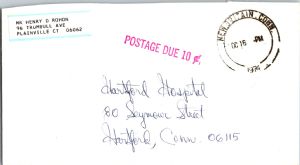 MR HENRY D ROHON
96 TRUMBULL AVE
PLAINVILLE CT 06062
POSTAGE DUE 10 ¢
CONN.
PM
1974
Hartford Hospital
80 Seymour Street
Hartford, Conn. 06115